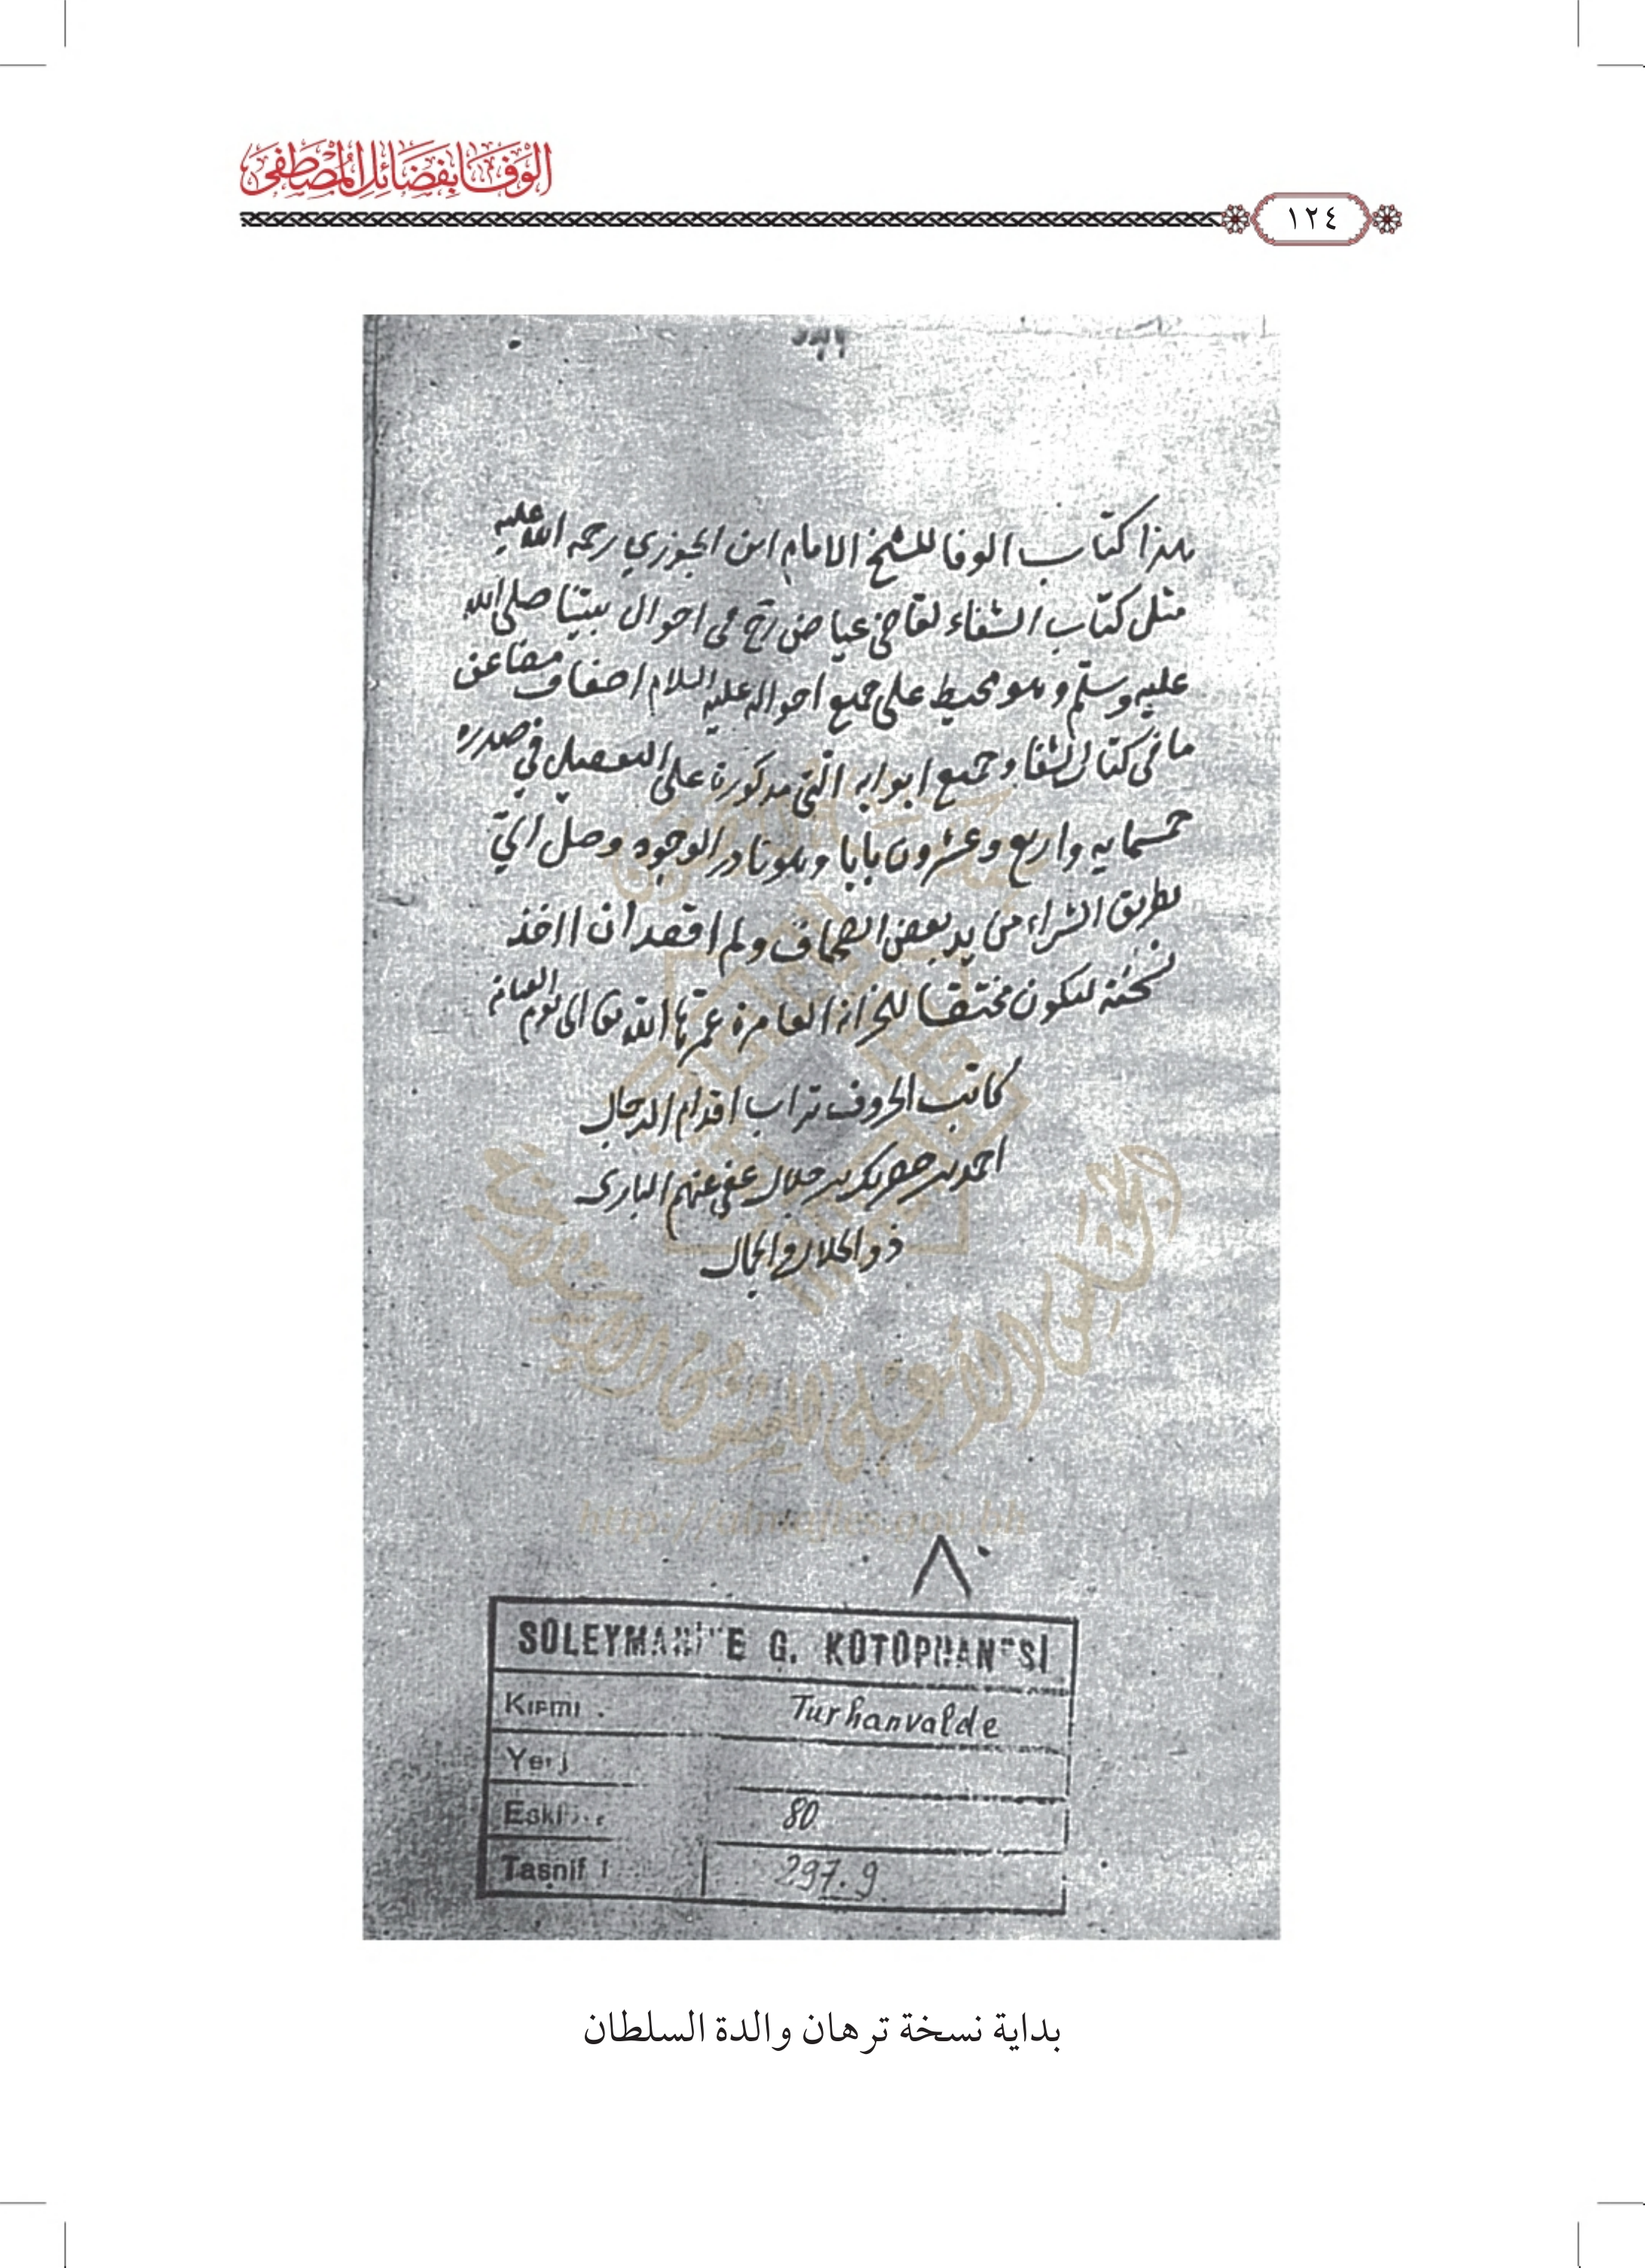 الوفا بفضائل المصطفى
١٢٤
هذا كتاب الوفا للشيخ الامام ابن الجوزي رحمة الله عليه
مثل كتاب الشفاء لقاضي عياض رح في احوال نبينا صلى الله
عليه وسلم وهو محيط على جميع احواله عليه السلام اضعاف مضاعف
ما في كتاب الشفا وجميع ابوابه التي مذكورة على التفصيل في صدره
خمسمايه واربع وعشرون بابا وهو نادر الوجود وصل الي
بطريق الشراء من يد بعض الصحاف ولم اقصد ان ااخذ
نسخته ليكون مختصا للخزانة العامرة عمرها الله تعا الى يوم القيامة
كاتب الحروف تراب اقدام الرجال
احمد بن خضر بك بن جلال عفى عنهم البارى
ذو الجلال والجمال
المجلس الأعلى للشئون الإسلامية
٨٠
SÜLEYMANİYE G. KÜTÜPHANESİ
Kısmı Turhanvalde
Yeni
Eski 80
Tasnif 297.9
بداية نسخة ترهان والدة السلطان